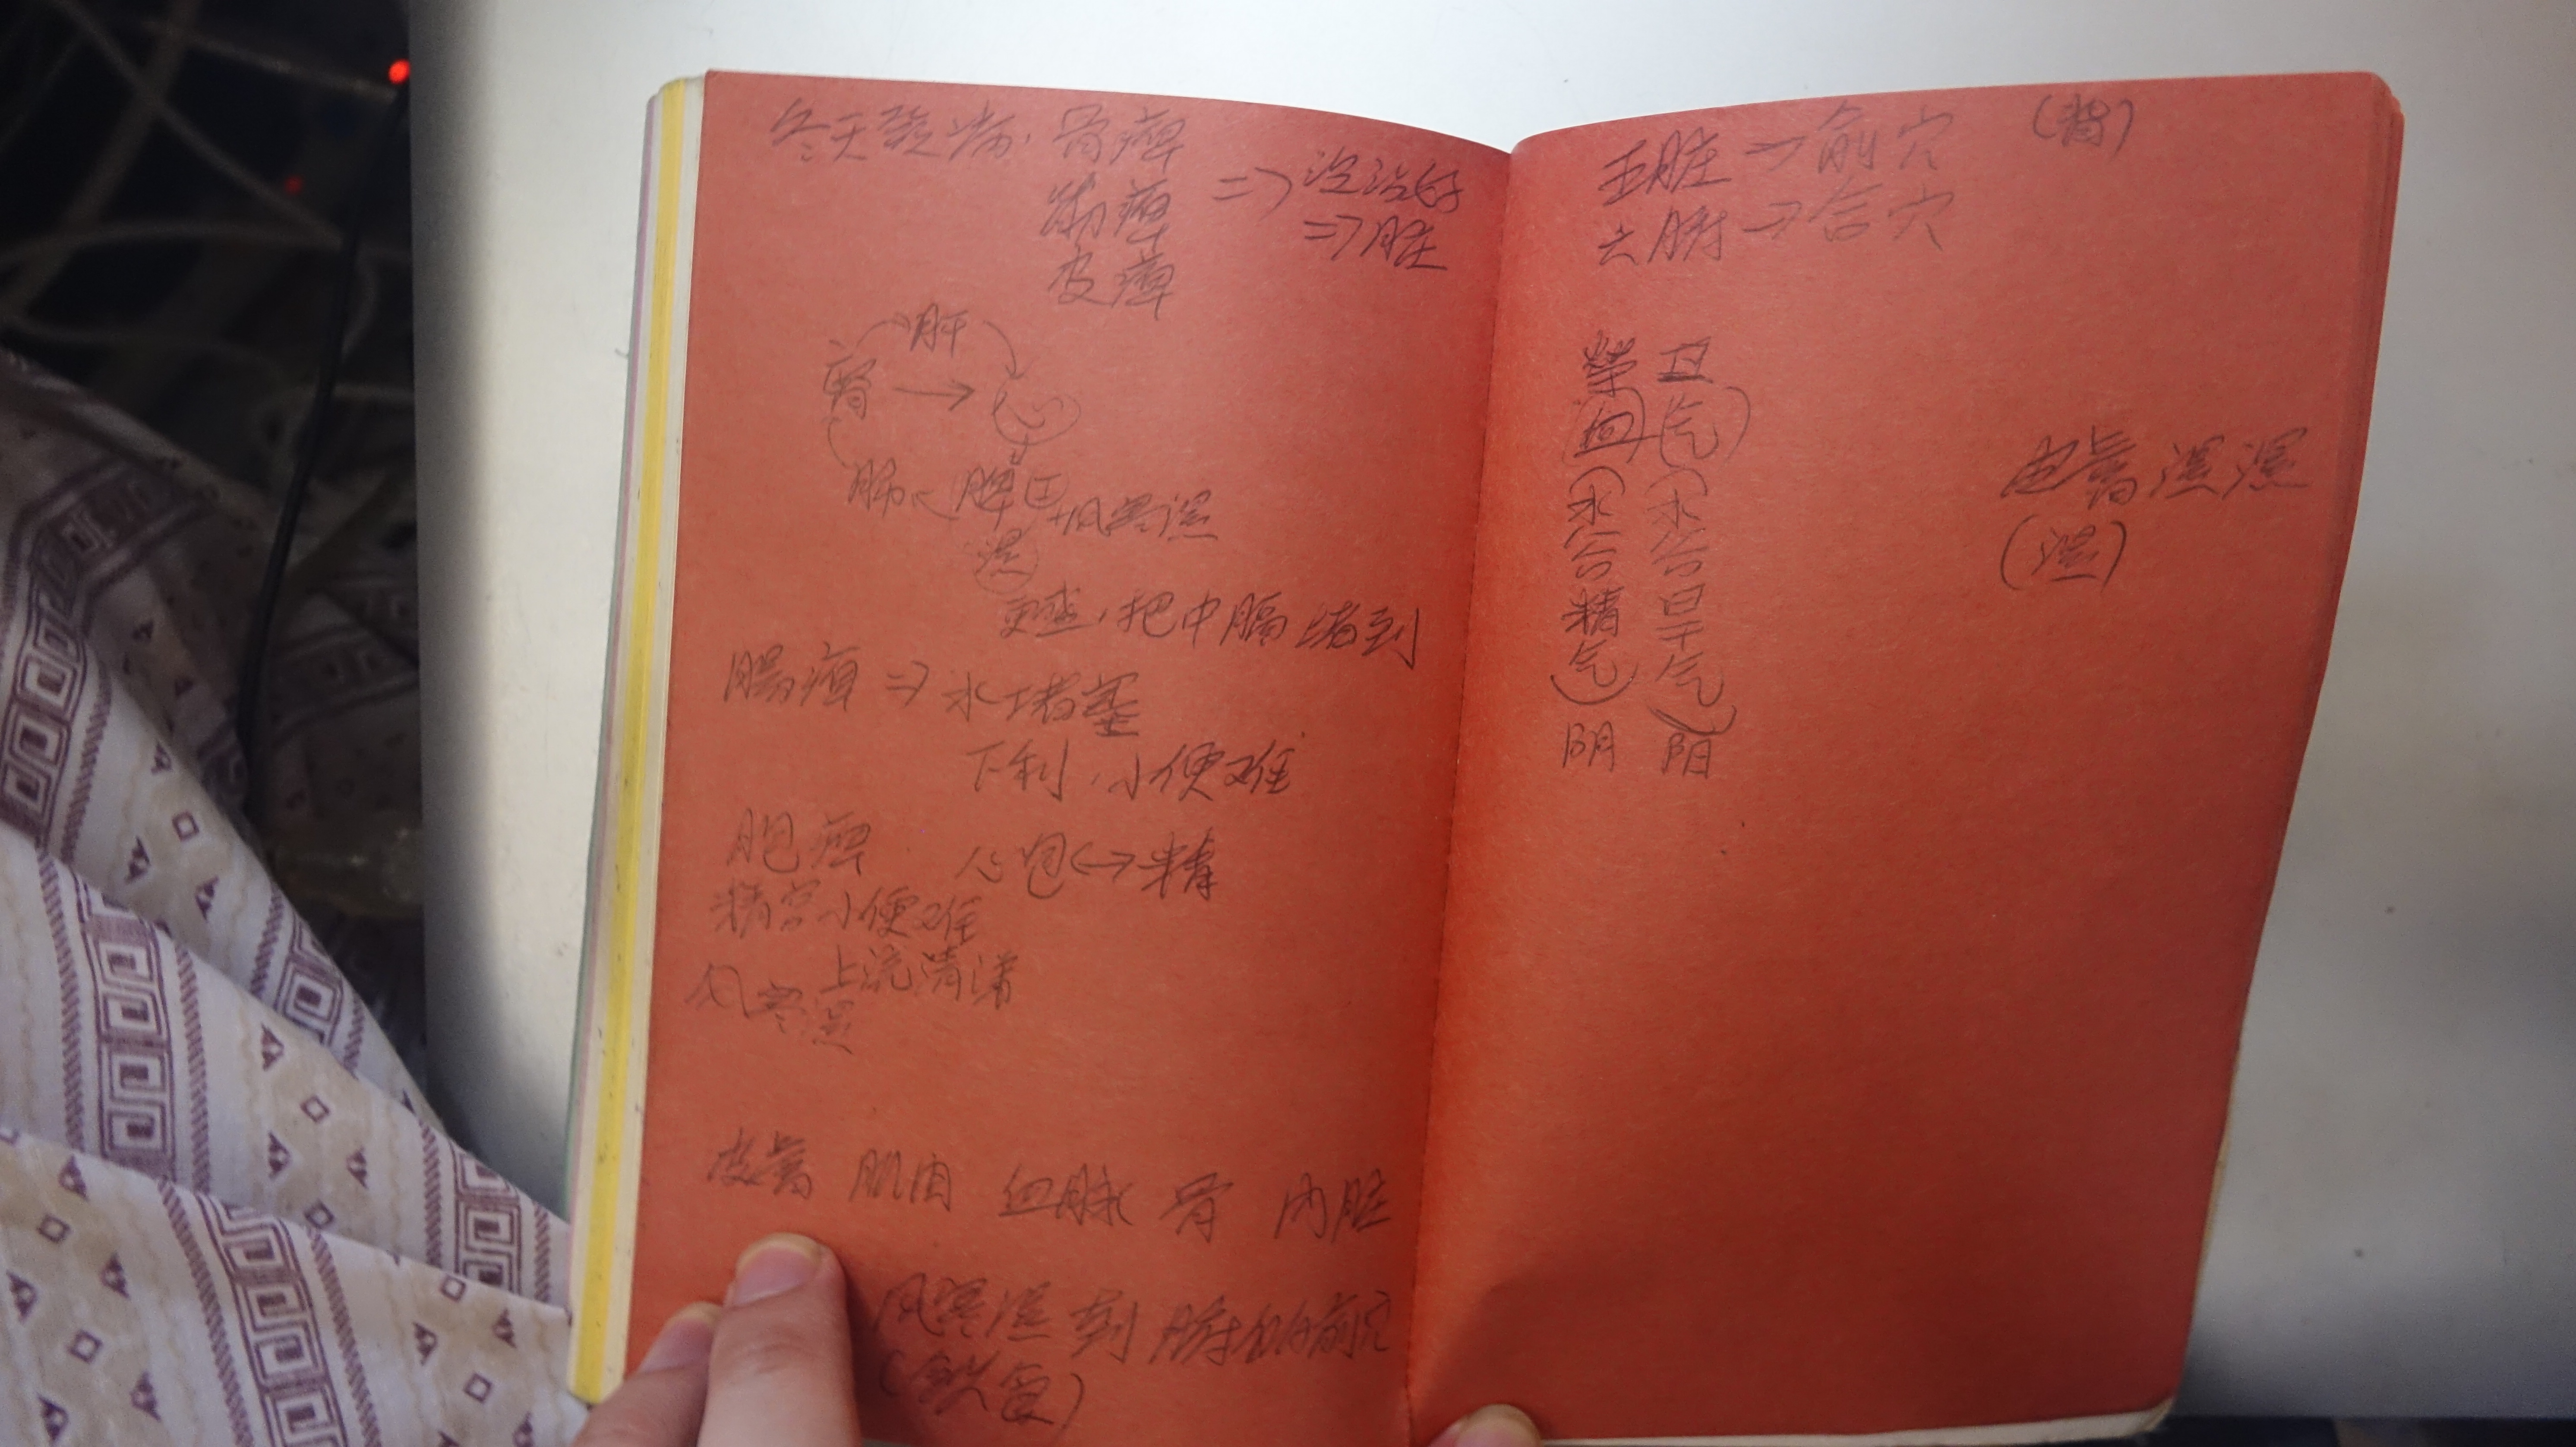 冬天发病. 骨痹
筋痹 => 没治好
=> 脏
皮痹
肝
肾 → 心
肺 脾 土 风寒湿
湿
更盛,把中膈堵到
肠痹 => 水堵塞
下利,小便难
胞痹 心包 <-> 精
小便难
上流清涕
风寒湿
皮膏 肌肉 血脉 骨 内脏
风寒湿到腑的俞穴
(饮食)
五脏 → 俞穴 (背)
六腑 → 合穴
荣(血)(水谷精气) 阴
卫(气)(水谷旱干气) 阳
湿湿
(湿)